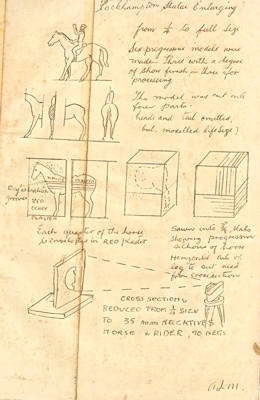 Rockhampton Statue Enlarging
from 1/4 to full size
Six progressive models were
made. Three with a degree
of show finish – three for
processing.
The model was cut into
four parts.
heads and tail omitted,
but modelled life size)
Registration
grooves
RED
OCHRE
PLASTER
Each quarter of the horse
is enveloped in RED plaster
Sawn into slabs
showing progressive
sections of horse
Horizontal cuts of
leg to suit need
for cross section
CROSS SECTIONS
REDUCED FROM 1/4 SIZE
TO 35 mm NEGATIVES
HORSE & RIDER, 90 NEGS